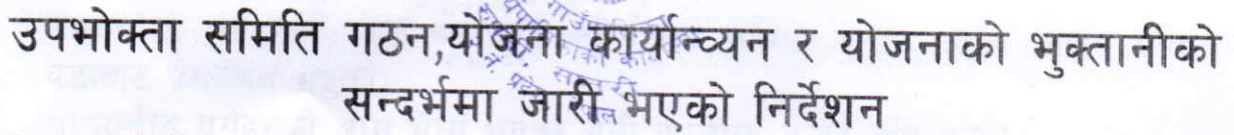 उपभोक्ता समिति गठन,योजना कार्यान्व्यन र योजनाको भुक्तानीको
सन्दर्भमा जारी भएको निर्देशन